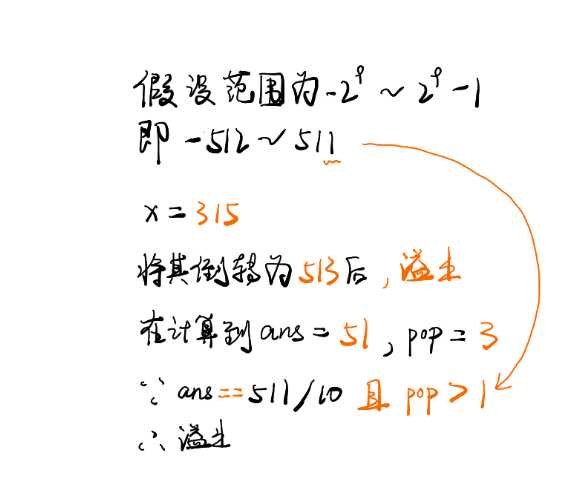 假设范围为-2⁹～2⁹-1
即 -512～511
x = 315
将其倒转为513后，溢出
在计算到ans = 51，pop = 3
∵ ans==511/10 且 pop > 1
∴ 溢出